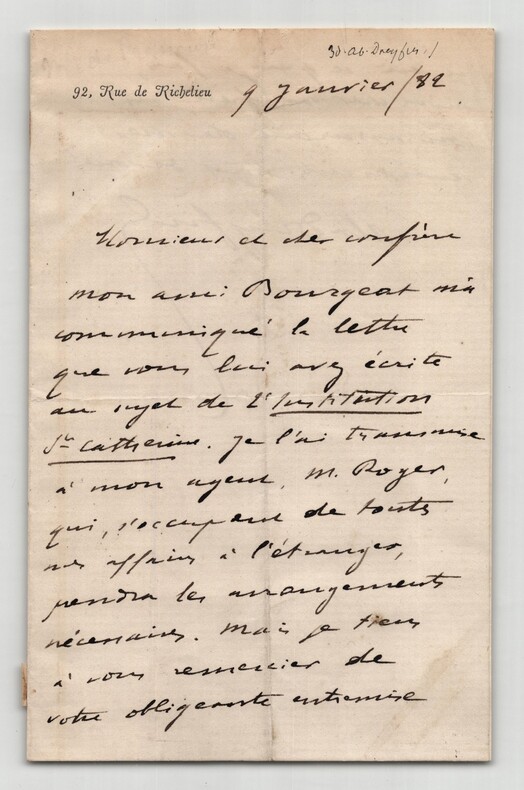 30. Ab. Dreyfus
92, Rue de Richelieu 9 Janvier /82
Monsieur et cher confrère
mon ami Bourgeat m'a
communiqué la lettre
que vous lui avez écrite
au sujet de l'Institution
Ste Catherine. Je l'ai transmise
à mon agent, M. Roger,
qui, s'occupant de toutes
mes affaires à l'étranger,
prendra les arrangements
nécessaires. Mais je tiens
à vous remercier de
votre obligeante entremise